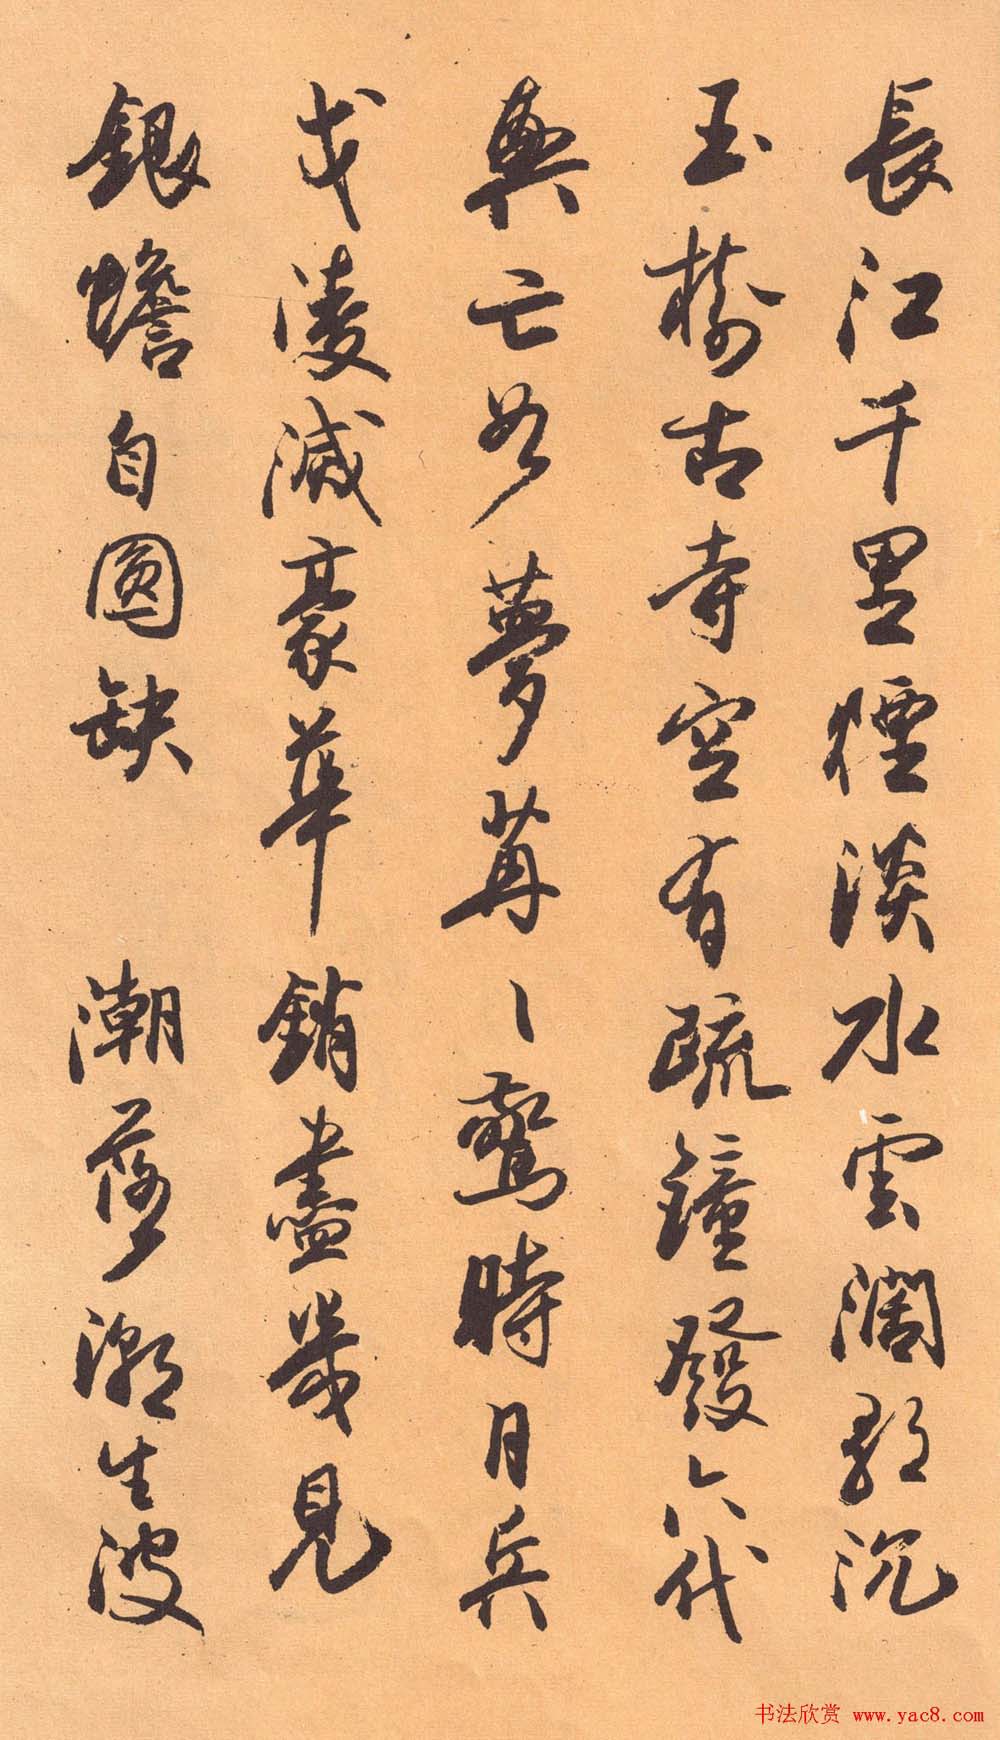 長江千里煙淡水雲闊歌沉
玉樹古寺空有疏鐘發六代
興亡如夢苒〻驚時月兵
戈凌滅豪華銷盡幾見
銀蟾自圓缺 潮落潮生波
书法欣赏 www.yac8.com